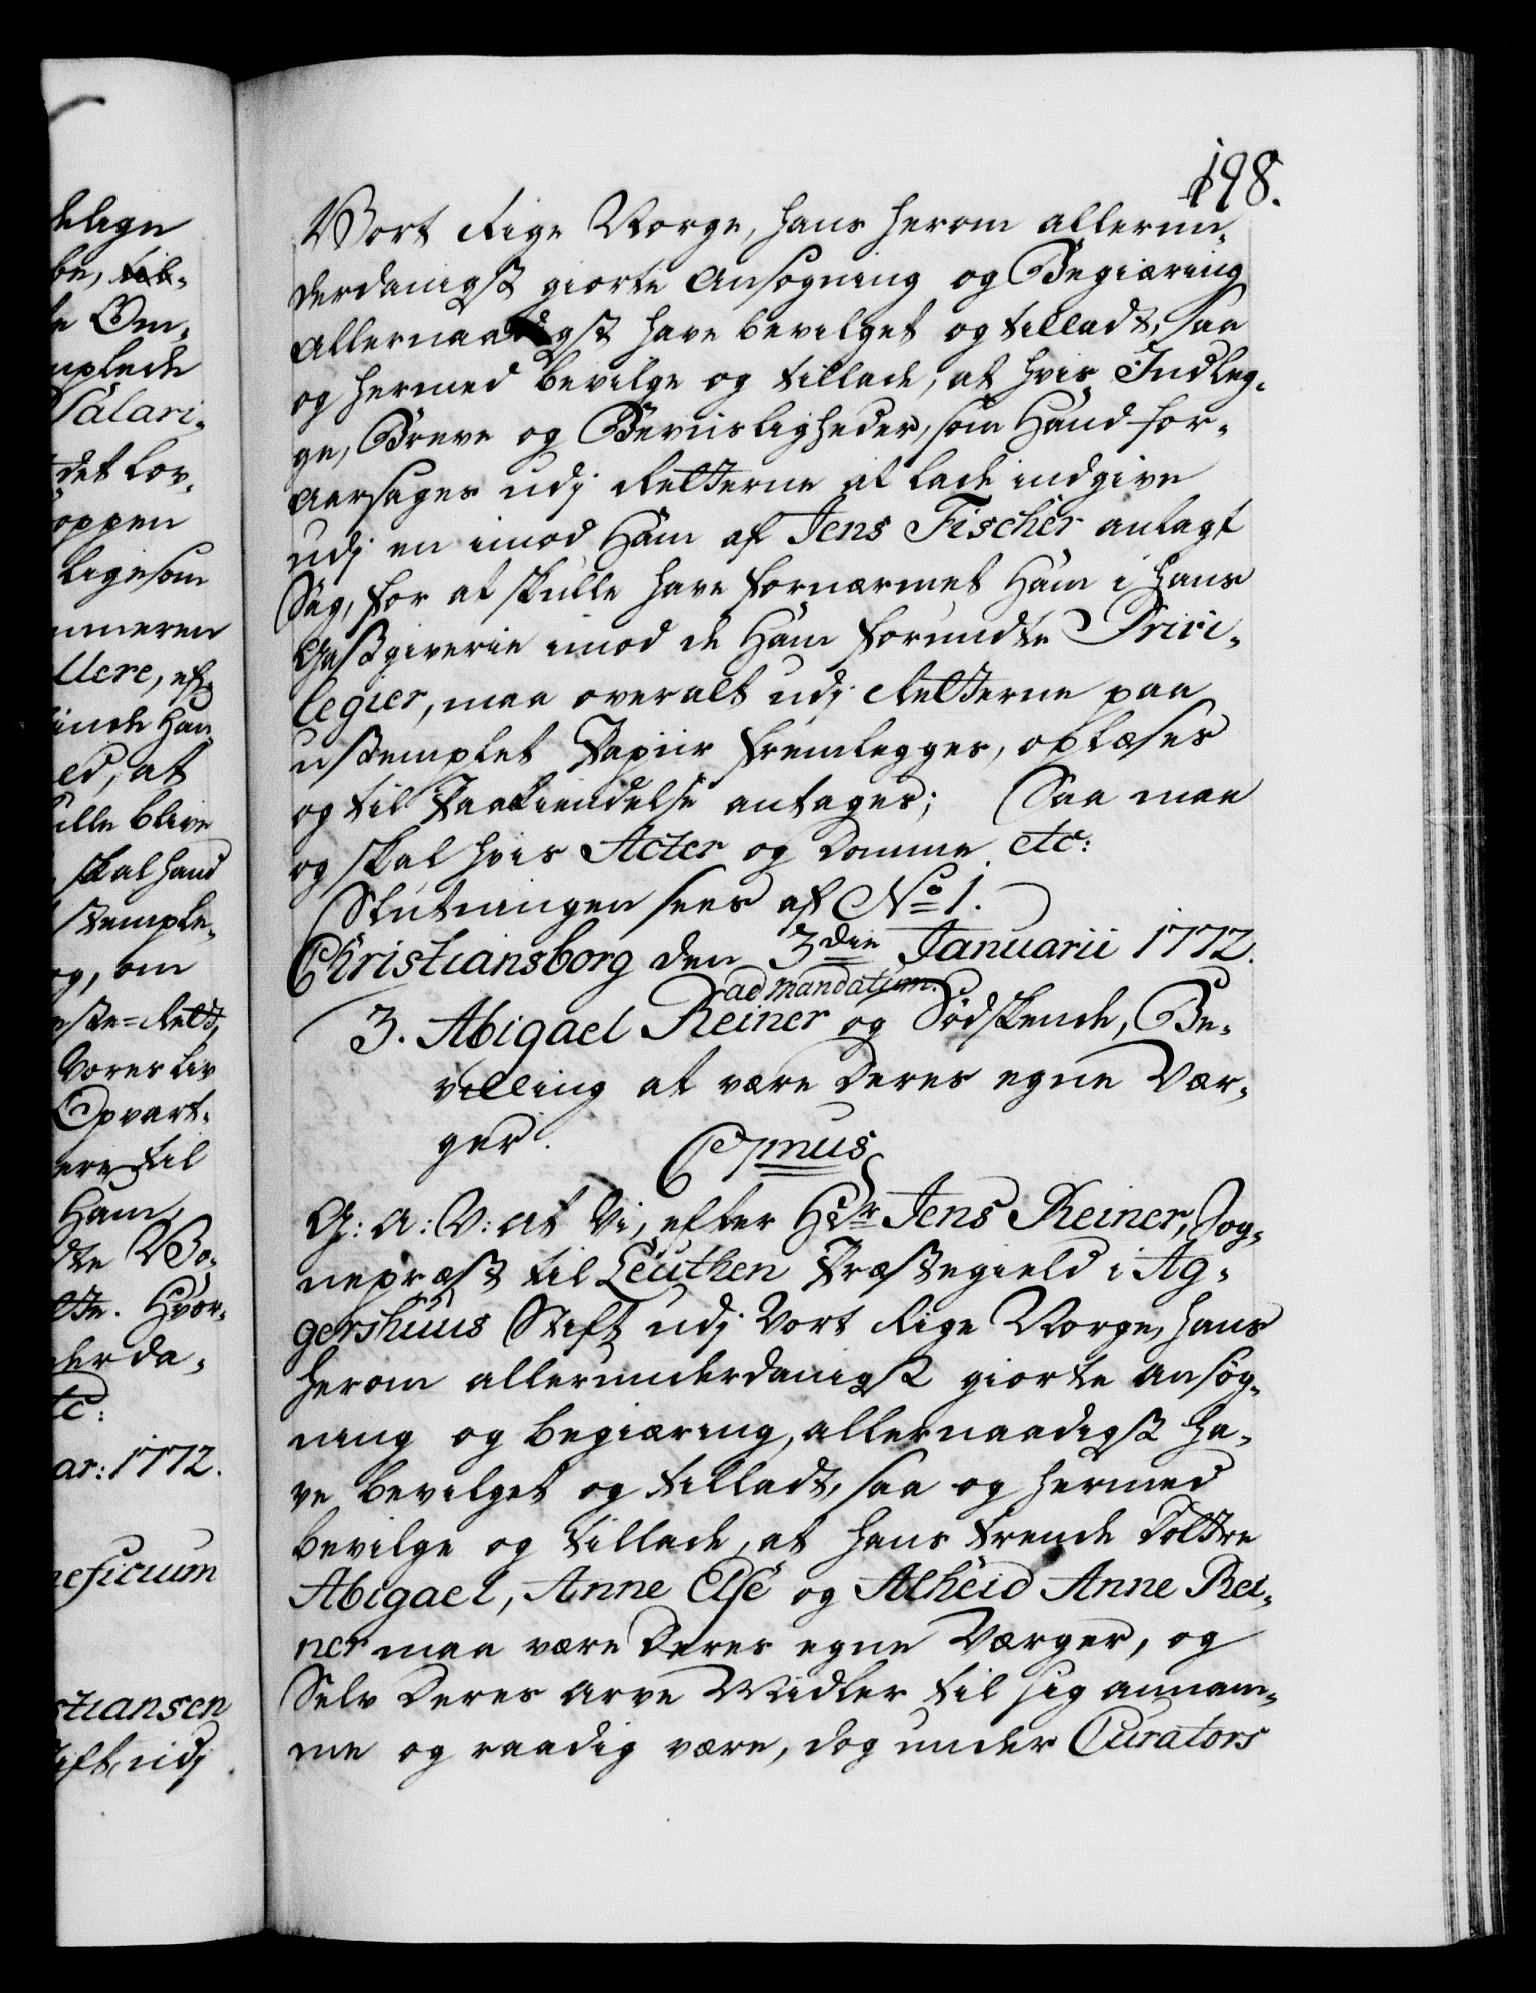 198.
Vort Rige Norge, hans herom allerun-
derdanigst giorte Ansøgning og Begiæring
Allernaadigst have bevilget og tilladt, saa
og hermed bevilge og tillade, at hvis Indleg-
ge, Breve og Beviisligheder, som Hand for-
aarsages udj Retterne at lade indgive
udj en imod Ham af Jens Fischer anlagt
Sag, for at skulle have fornærmet Ham i hans
Gæstgiverie imod de Ham forundte Privi-
legier, maa overalt udj Retterne paa
ustemplet Papiir fremlegges, oplæses
og til Paakiendelse antages; Saa maa
og skal hvis Acter og Domme etc:
Slutningen sees af No 1.
Christiansborg den 3die Januarii 1772.
ad mandatum.
3. Abigael Reiner og Sødskende, Be-
villing at være Deres egne Vær-
ger. C 7mus
G: A: V: at Vi, efter Hr Jens Reiner, Sog-
nepræst til Leuthen Præstegield i Ag-
gershuus Stift udj Vort Rige Norge, hans
herom allerunderdanigst giorte Ansøg-
ning og begiæring, allernaadigst ha-
ve bevilget og tilladt, saa og hermed
bevilge og tillade, at hans trende Døttre
Abigael, Anne Else og Alheid Anne Rei-
ner maa være Deres egne Værger, og
Selv Deres Arve Midler til sig annam-
me og raadig være, dog under Curators
delige
be,
le Om-
mplede
Salari-
det lov-
oppen
ligesom
mmeren
llere, ef-
ed, at
ulle blive
skal hand
stemple-
og, om
Vores Liv
Opvart-
ere til
Ham,
Hvor-
derda-
tc:
ar: 1772.
neficium
stiansen
ift, udj